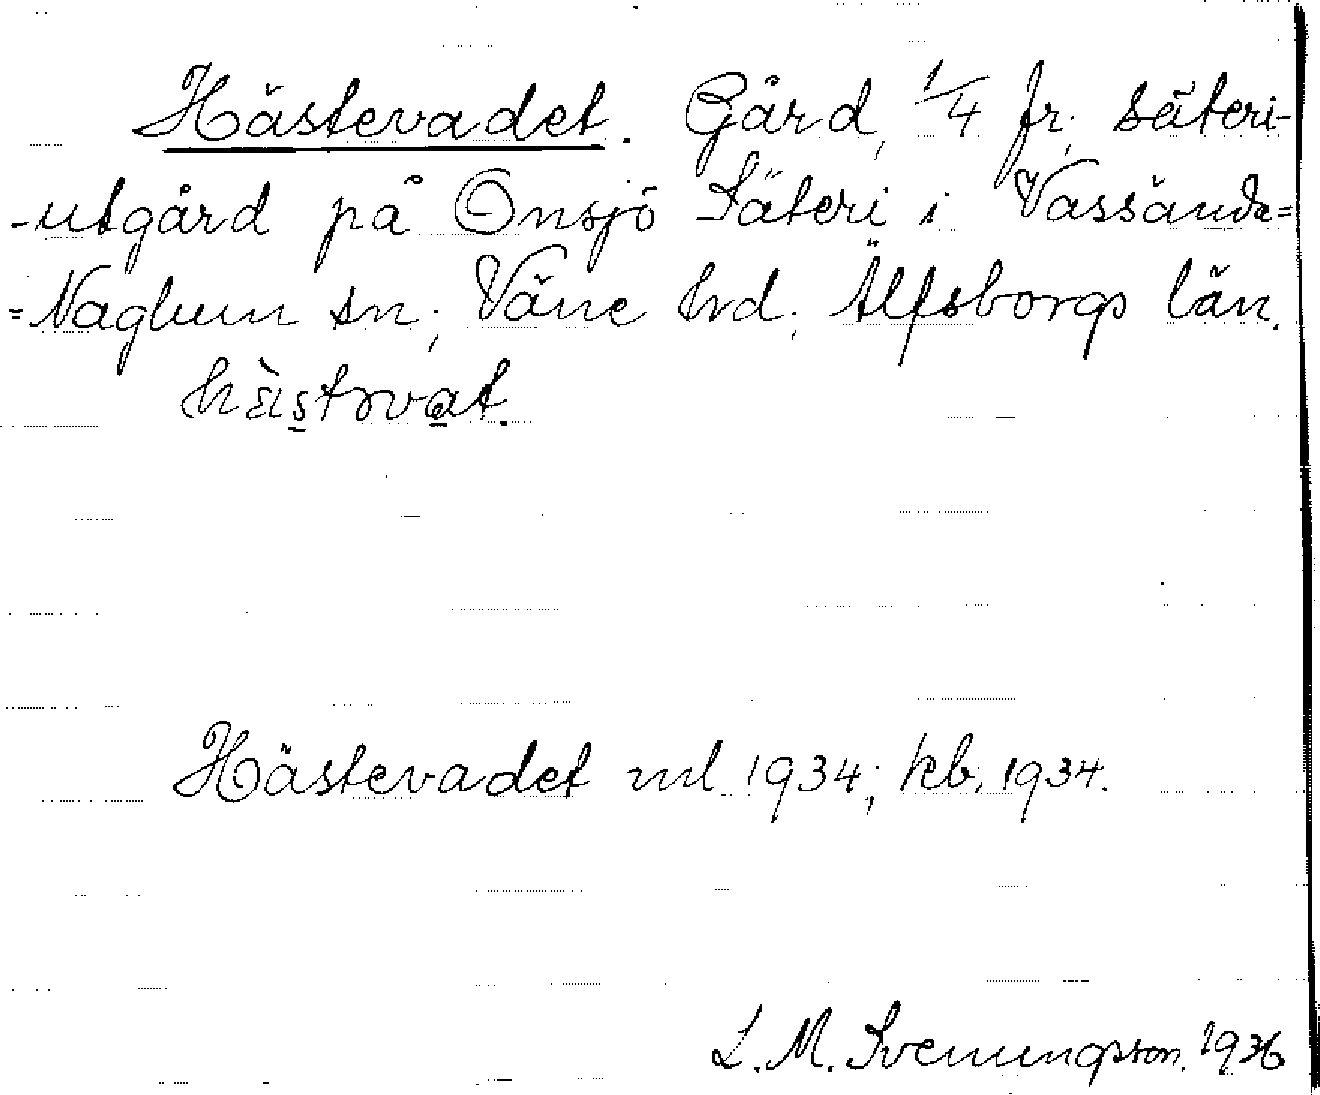 Hästevadet. Gård, 1/4 fr. säteri-
-utgård på Onsjö Säteri i Vassända=
=Naglum sn; Väne hrd; Älfsborgs län.
Hästevadet ml 1934; kb. 1934.
L. M. Svenungsson. 1936